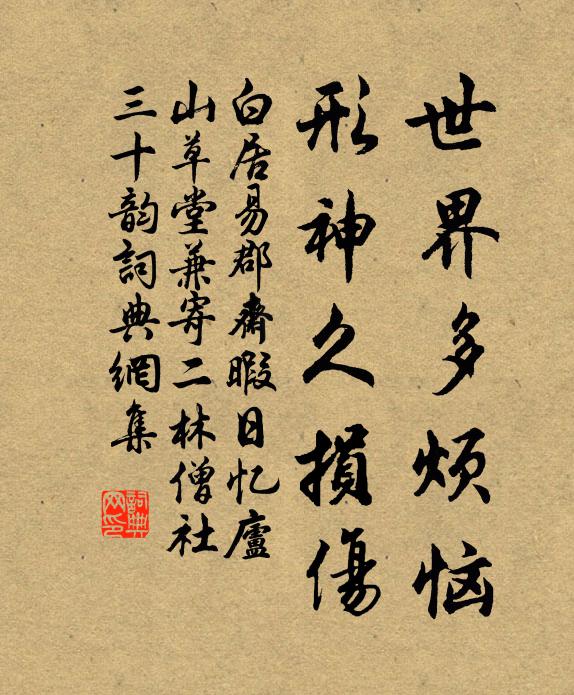 世界多烦恼
形神久損傷
白居易郡齋暇日忆廬
山草堂兼寄二林僧社
三十韵詞典網集
詞典
网印